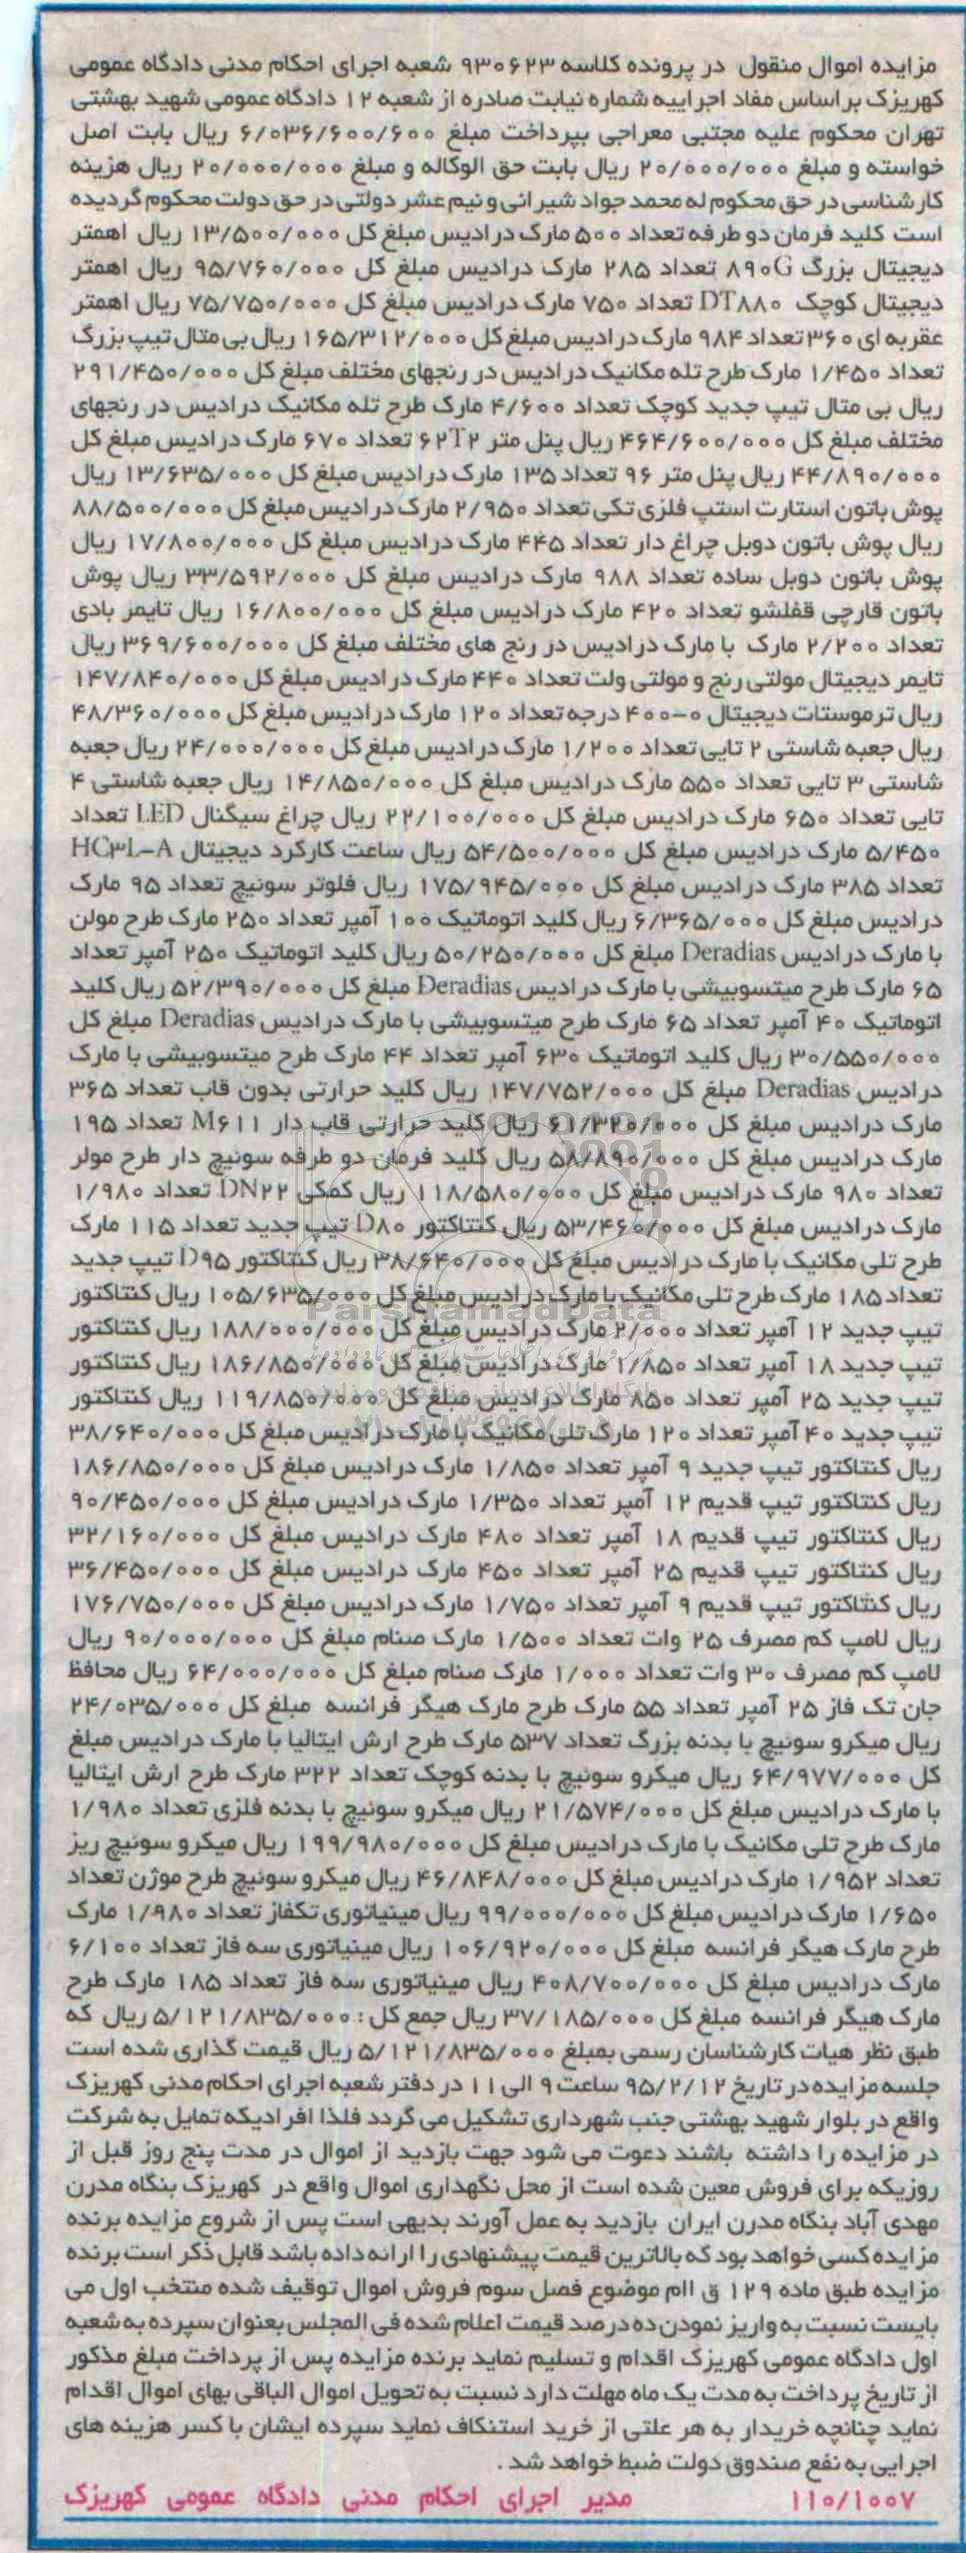 مزایده اموال منقول در پرونده کلاسه ۹۳۰۶۲۳ شعبه اجرای احکام مدنی دادگاه عمومی
کهریزک بر اساس مفاد اجراییه شماره نیابت صادره از شعبه ۱۲ دادگاه عمومی شهید بهشتی
تهران محکوم علیه مجتبی معراجی بپرداخت مبلغ ۶/۰۳۶/۶۰۰/۶۰۰ ریال بابت اصل
خواسته و مبلغ ۲۰/۰۰۰/۰۰۰ ریال بابت حق الوکاله و مبلغ ۲۰/۰۰۰/۰۰۰ ریال هزینه
کارشناسی در حق محکوم له محمد جواد شیرانی و نیم عشر دولتی در حق دولت محکوم گردیده
است کلید فرمان دو طرفه تعداد ۵۰۰ مارک درادیس مبلغ کل ۱۳/۵۰۰/۰۰۰ ریال اهمتر
دیجیتال بزرگ ۸۹۰G تعداد ۲۸۵ مارک درادیس مبلغ کل ۹۵/۷۶۰/۰۰۰ ریال اهمتر
دیجیتال کوچک DT۸۸۰ تعداد ۷۵۰ مارک درادیس مبلغ کل ۷۵/۷۵۰/۰۰۰ ریال اهمتر
عقربه ای ۳۶۰ تعداد ۹۸۴ مارک درادیس مبلغ کل ۱۶۵/۳۱۲/۰۰۰ ریال بی متال تیپ بزرگ
تعداد ۱/۴۵۰ مارک طرح تله مکانیک درادیس در رنجهای مختلف مبلغ کل ۲۹۱/۴۵۰/۰۰۰
ریال بی متال تیپ جدید کوچک تعداد ۴/۶۰۰ مارک طرح تله مکانیک درادیس در رنجهای
مختلف مبلغ کل ۴۶۴/۶۰۰/۰۰۰ ریال پنل متر ۶۲T۲ تعداد ۶۷۰ مارک درادیس مبلغ کل
۴۴/۸۹۰/۰۰۰ ریال پنل متر ۹۶ تعداد ۱۳۵ مارک درادیس مبلغ کل ۱۳/۶۳۵/۰۰۰ ریال
پوش باتون استارت استپ فلزی تکی تعداد ۲/۹۵۰ مارک درادیس مبلغ کل ۸۸/۵۰۰/۰۰۰
ریال پوش باتون دوبل چراغ دار تعداد ۴۴۵ مارک درادیس مبلغ کل ۱۷/۸۰۰/۰۰۰ ریال
پوش باتون دوبل ساده تعداد ۹۸۸ مارک درادیس مبلغ کل ۳۳/۵۹۲/۰۰۰ ریال پوش
باتون قارچی قفلشو تعداد ۴۲۰ مارک درادیس مبلغ کل ۱۶/۸۰۰/۰۰۰ ریال تایمر بادی
تعداد ۲/۲۰۰ مارک با مارک درادیس در رنج های مختلف مبلغ کل ۳۶۹/۶۰۰/۰۰۰ ریال
تایمر دیجیتال مولتی رنج و مولتی ولت تعداد ۴۴۰ مارک درادیس مبلغ کل ۱۴۷/۸۴۰/۰۰۰
ریال ترموستات دیجیتال ۰-۴۰۰ درجه تعداد ۱۲۰ مارک درادیس مبلغ کل ۴۸/۳۶۰/۰۰۰
ریال جعبه شاستی ۲ تایی تعداد ۱/۲۰۰ مارک درادیس مبلغ کل ۲۴/۰۰۰/۰۰۰ ریال جعبه
شاستی ۳ تایی تعداد ۵۵۰ مارک درادیس مبلغ کل ۱۴/۸۵۰/۰۰۰ ریال جعبه شاستی ۴
تایی تعداد ۶۵۰ مارک درادیس مبلغ کل ۲۲/۱۰۰/۰۰۰ ریال چراغ سیگنال LED تعداد
۵/۴۵۰ مارک درادیس مبلغ کل ۵۴/۵۰۰/۰۰۰ ریال ساعت کارکرد دیجیتال HC۳L-A
تعداد ۳۸۵ مارک درادیس مبلغ کل ۱۷۵/۹۴۵/۰۰۰ ریال فلوتر سوئیچ تعداد ۹۵ مارک
درادیس مبلغ کل ۶/۳۶۵/۰۰۰ ریال کلید اتوماتیک ۱۰۰ آمپر تعداد ۲۵۰ مارک طرح مولن
با مارک درادیس Deradias مبلغ کل ۵۰/۲۵۰/۰۰۰ ریال کلید اتوماتیک ۲۵۰ آمپر تعداد
۶۵ مارک طرح میتسوبیشی با مارک درادیس Deradias مبلغ کل ۵۲/۳۹۰/۰۰۰ ریال کلید
اتوماتیک ۴۰ آمپر تعداد ۶۵ مارک طرح میتسوبیشی با مارک درادیس Deradias مبلغ کل
۳۰/۵۵۰/۰۰۰ ریال کلید اتوماتیک ۶۳۰ آمپر تعداد ۴۴ مارک طرح میتسوبیشی با مارک
درادیس Deradias مبلغ کل ۱۴۷/۷۵۲/۰۰۰ ریال کلید حرارتی بدون قاب تعداد ۳۶۵
مارک درادیس مبلغ کل ۶۱/۳۲۰/۰۰۰ ریال کلید حرارتی قاب دار M۶۱۱ تعداد ۱۹۵
مارک درادیس مبلغ کل ۵۸/۸۹۰/۰۰۰ ریال کلید فرمان دو طرفه سوئیچ دار طرح مولر
تعداد ۹۸۰ مارک درادیس مبلغ کل ۱۱۸/۵۸۰/۰۰۰ ریال کمکی DN۲۲ تعداد ۱/۹۸۰
مارک درادیس مبلغ کل ۵۳/۴۶۰/۰۰۰ ریال کنتاکتور D۸۰ تیپ جدید تعداد ۱۱۵ مارک
طرح تلی مکانیک با مارک درادیس مبلغ کل ۳۸/۶۴۰/۰۰۰ ریال کنتاکتور D۹۵ تیپ جدید
تعداد ۱۸۵ مارک طرح تلی مکانیک با مارک درادیس مبلغ کل ۱۰۵/۶۳۵/۰۰۰ ریال کنتاکتور
تیپ جدید ۱۲ آمپر تعداد ۲/۰۰۰ مارک درادیس مبلغ کل ۱۸۸/۰۰۰/۰۰۰ ریال کنتاکتور
تیپ جدید ۱۸ آمپر تعداد ۱/۸۵۰ مارک درادیس مبلغ کل ۱۸۶/۸۵۰/۰۰۰ ریال کنتاکتور
تیپ جدید ۲۵ آمپر تعداد ۸۵۰ مارک درادیس مبلغ کل ۱۱۹/۸۵۰/۰۰۰ ریال کنتاکتور
تیپ جدید ۴۰ آمپر تعداد ۱۲۰ مارک تلی مکانیک با مارک درادیس مبلغ کل ۳۸/۶۴۰/۰۰۰
ریال کنتاکتور تیپ جدید ۹ آمپر تعداد ۱/۸۵۰ مارک درادیس مبلغ کل ۱۸۶/۸۵۰/۰۰۰
ریال کنتاکتور تیپ قدیم ۱۲ آمپر تعداد ۱/۳۵۰ مارک درادیس مبلغ کل ۹۰/۴۵۰/۰۰۰
ریال کنتاکتور تیپ قدیم ۱۸ آمپر تعداد ۴۸۰ مارک درادیس مبلغ کل ۳۲/۱۶۰/۰۰۰
ریال کنتاکتور تیپ قدیم ۲۵ آمپر تعداد ۴۵۰ مارک درادیس مبلغ کل ۳۶/۴۵۰/۰۰۰
ریال کنتاکتور تیپ قدیم ۹ آمپر تعداد ۱/۷۵۰ مارک درادیس مبلغ کل ۱۷۶/۷۵۰/۰۰۰
ریال لامپ کم مصرف ۲۵ وات تعداد ۱/۵۰۰ مارک صنام مبلغ کل ۹۰/۰۰۰/۰۰۰ ریال
لامپ کم مصرف ۳۰ وات تعداد ۱/۰۰۰ مارک صنام مبلغ کل ۶۴/۰۰۰/۰۰۰ ریال محافظ
جان تک فاز ۲۵ آمپر تعداد ۵۵ مارک طرح مارک هیگر فرانسه مبلغ کل ۲۴/۰۳۵/۰۰۰
ریال میکرو سوئیچ با بدنه بزرگ تعداد ۵۳۷ مارک طرح ارش ایتالیا با مارک درادیس مبلغ
کل ۶۴/۹۷۷/۰۰۰ ریال میکرو سوئیچ با بدنه کوچک تعداد ۳۲۲ مارک طرح ارش ایتالیا
با مارک درادیس مبلغ کل ۲۱/۵۷۴/۰۰۰ ریال میکرو سوئیچ با بدنه فلزی تعداد ۱/۹۸۰
مارک طرح تلی مکانیک با مارک درادیس مبلغ کل ۱۹۹/۹۸۰/۰۰۰ ریال میکرو سوئیچ ریز
تعداد ۱/۹۵۲ مارک درادیس مبلغ کل ۴۶/۸۴۸/۰۰۰ ریال میکرو سوئیچ طرح موژن تعداد
۱/۶۵۰ مارک درادیس مبلغ کل ۹۹/۰۰۰/۰۰۰ ریال مینیاتوری تکفاز تعداد ۱/۹۸۰ مارک
طرح مارک هیگر فرانسه مبلغ کل ۱۰۶/۹۲۰/۰۰۰ ریال مینیاتوری سه فاز تعداد ۶/۱۰۰
مارک درادیس مبلغ کل ۴۰۸/۷۰۰/۰۰۰ ریال مینیاتوری سه فاز تعداد ۱۸۵ مارک طرح
مارک هیگر فرانسه مبلغ کل ۳۷/۱۸۵/۰۰۰ ریال جمع کل : ۵/۱۲۱/۸۳۵/۰۰۰ ریال که
طبق نظر هیات کارشناسان رسمی بمبلغ ۵/۱۲۱/۸۳۵/۰۰۰ ریال قیمت گذاری شده است
جلسه مزایده در تاریخ ۹۵/۲/۱۲ ساعت ۹ الی ۱۱ در دفتر شعبه اجرای احکام مدنی کهریزک
واقع در بلوار شهید بهشتی جنب شهرداری تشکیل می گردد فلذا افرادیکه تمایل به شرکت
در مزایده را داشته باشند دعوت می شود جهت بازدید از اموال در مدت پنج روز قبل از
روزیکه برای فروش معین شده است از محل نگهداری اموال واقع در کهریزک بنگاه مدرن
مهدی آباد بنگاه مدرن ایران بازدید به عمل آورند بدیهی است پس از شروع مزایده برنده
مزایده کسی خواهد بود که بالاترین قیمت پیشنهادی را ارائه داده باشد قابل ذکر است برنده
مزایده طبق ماده ۱۲۹ ق اام موضوع فصل سوم فروش اموال توقیف شده منتخب اول می
بایست نسبت به واریز نمودن ده درصد قیمت اعلام شده فی المجلس بعنوان سپرده به شعبه
اول دادگاه عمومی کهریزک اقدام و تسلیم نماید برنده مزایده پس از پرداخت مبلغ مذکور
از تاریخ پرداخت به مدت یک ماه مهلت دارد نسبت به تحویل اموال الباقی بهای اموال اقدام
نماید چنانچه خریدار به هر علتی از خرید استنکاف نماید سپرده ایشان با کسر هزینه های
اجرایی به نفع صندوق دولت ضبط خواهد شد .
۱۱۰/۱۰۰۷ مدیر اجرای احکام مدنی دادگاه عمومی کهریزک
ParsNamadData